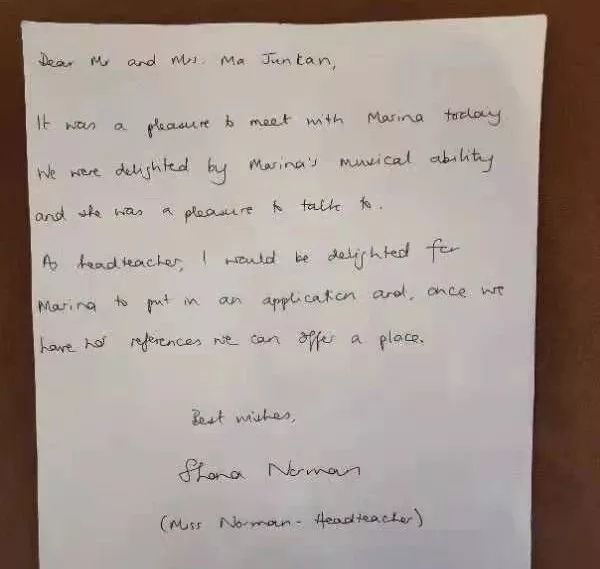 Dear Mr and Mrs. Ma Junkan,
It was a pleasure to meet with Marina today
We were delighted by Marina's musical ability
and she was a pleasure to talk to.
As headteacher, I would be delighted for
Marina to put in an application and, once we
have references we can offer a place.
Best wishes,
Shona Norman
(Miss Norman - Headteacher)